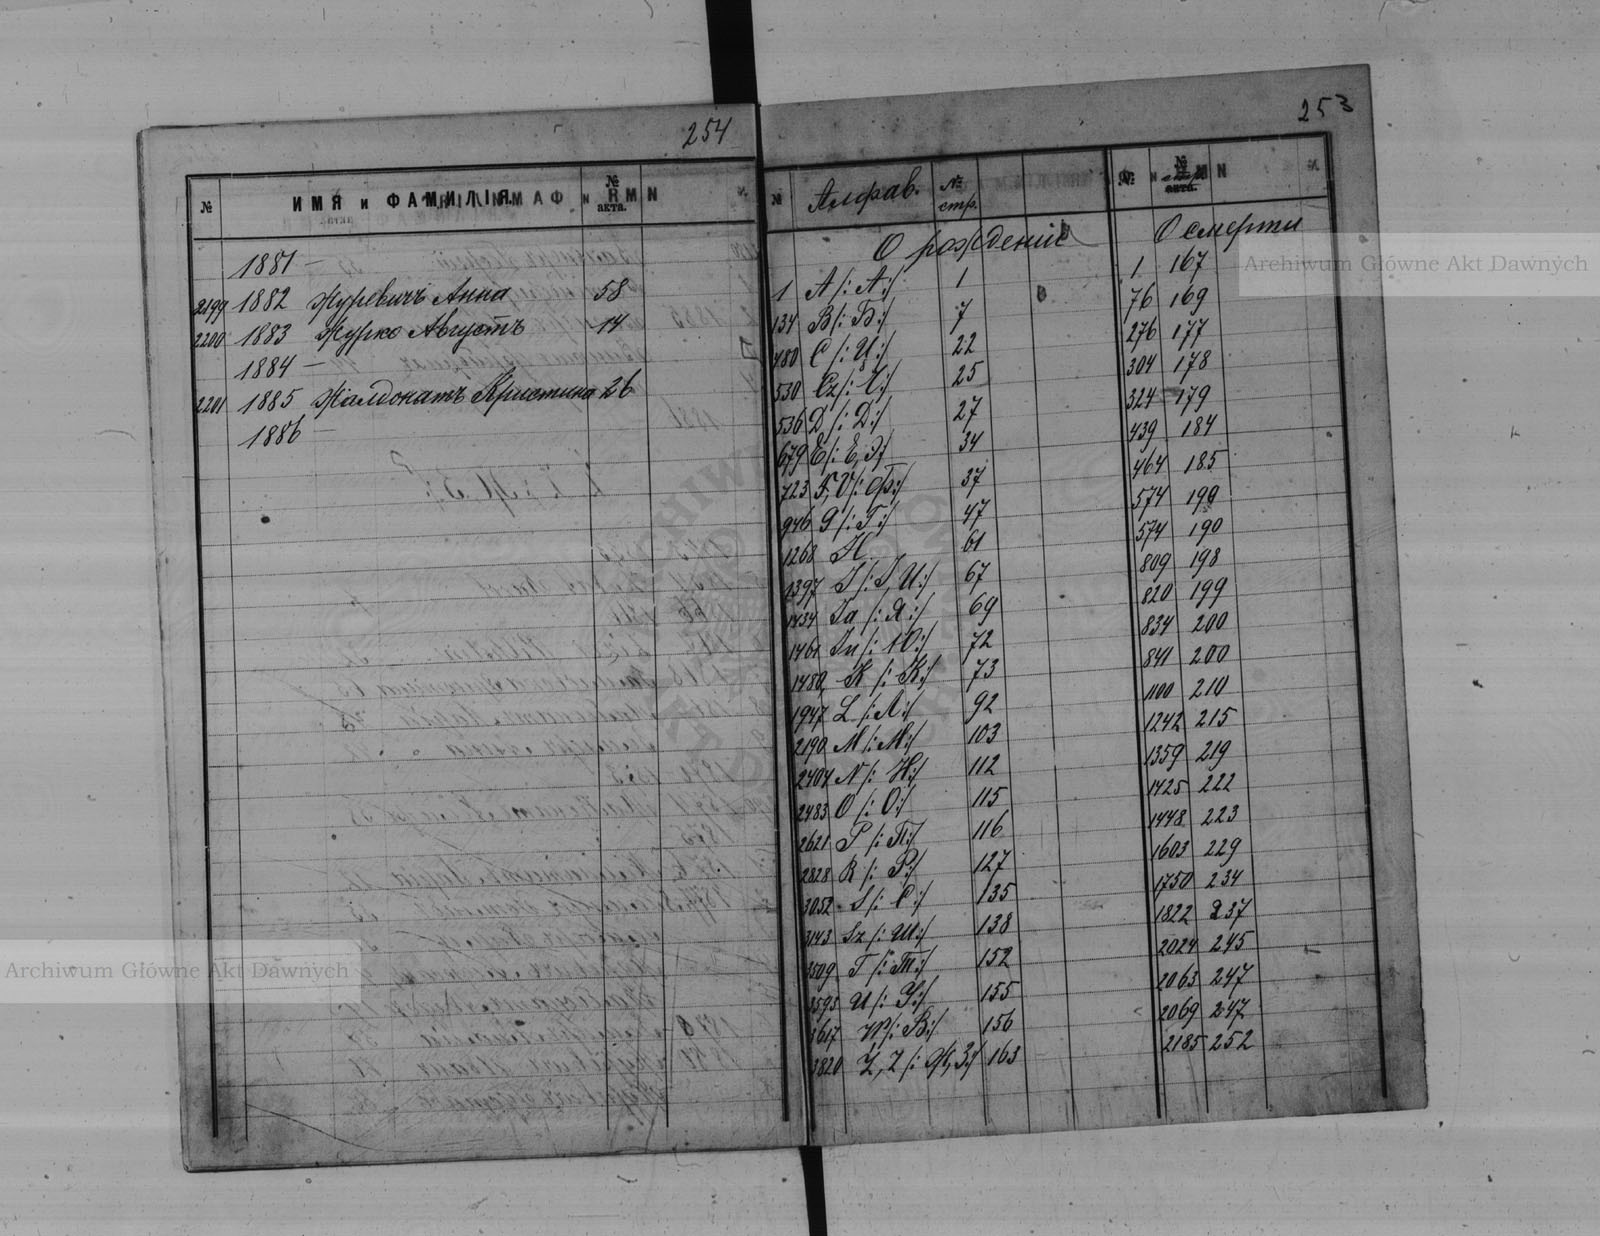 254
№ ИМЯ и ФАМИЛІЯ. № акта.
1881 —
2199 1882 Журевичъ Анна 58
2200 1883 Журко Августъ 14
1884 —
2201 1885 Жалдокатъ Кристина 26
1886 —
253
№ Алфав. № стр. № № стр.
О рожденіе О смерти
1 А /: А :/ 1 1 167
134 B /: Б :/ 7 76 169
480 C /: Ц :/ 22 276 177
530 Cz /: Ч :/ 25 304 178
536 D /: Д :/ 27 324 179
679 E /: Е, Э :/ 34 439 184
723 F, V /: Ф :/ 37 464 185
946 G /: Г :/ 47 574 190
1268 H 61 574 190
1397 I /: І, И :/ 67 809 198
1434 Ja /: Я :/ 69 820 199
1461 Ju /: Ю :/ 72 834 200
1480 K /: К :/ 73 841 200
1947 L /: Л :/ 92 1100 210
2190 M /: М :/ 103 1242 215
2404 N /: Н :/ 112 1359 219
2483 O /: О :/ 115 1425 222
2621 P /: П :/ 116 1448 223
2828 R /: Р :/ 127 1603 229
3052 S /: С :/ 135 1750 234
3143 Sz /: Ш :/ 138 1822 237
3509 T /: Т :/ 152 2024 245
3595 U /: У :/ 155 2063 247
3617 W /: В :/ 156 2069 247
3820 Ż, Z /: Ж, З :/ 163 2185 252
Archiwum Główne Akt Dawnych
Archiwum Główne Akt Dawnych